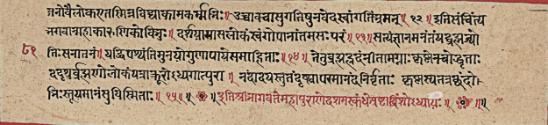 जनोवैलोकएतस्मिन्नविद्याकामकर्मभिः॥ उच्चावचासुगतिषुनवेदस्वांगतिंभ्रमन्॥ १२॥ इतिसंचिंत्य
भगवान्महाकारुणिकोविभुः॥ दर्शयामासलोकंस्वंगोपानांतमसःपरं॥ १३॥ सत्यंज्ञानमनंतंयद्ब्रह्मज्यो
८१ तिःसनातनं॥ यद्धिपश्यंतिमुनयोगुणापायेसमाहिताः॥ १४॥ तेतुब्रह्मह्रदंनीतामग्नाःकृष्णेनचोद्धृताः
ददृशुर्ब्रह्मणोलोकंयत्राक्रूरोध्यगात्पुरा॥ नंदादयस्तुतंदृष्ट्वापरमानंदनिर्वृताः॥ कृष्णंचतत्रछंदो
भिःस्तूयमानंसुविस्मिताः॥ १५॥ इतिश्रीभागवतेमहापुराणेदशमस्कंधे ध्यायः॥